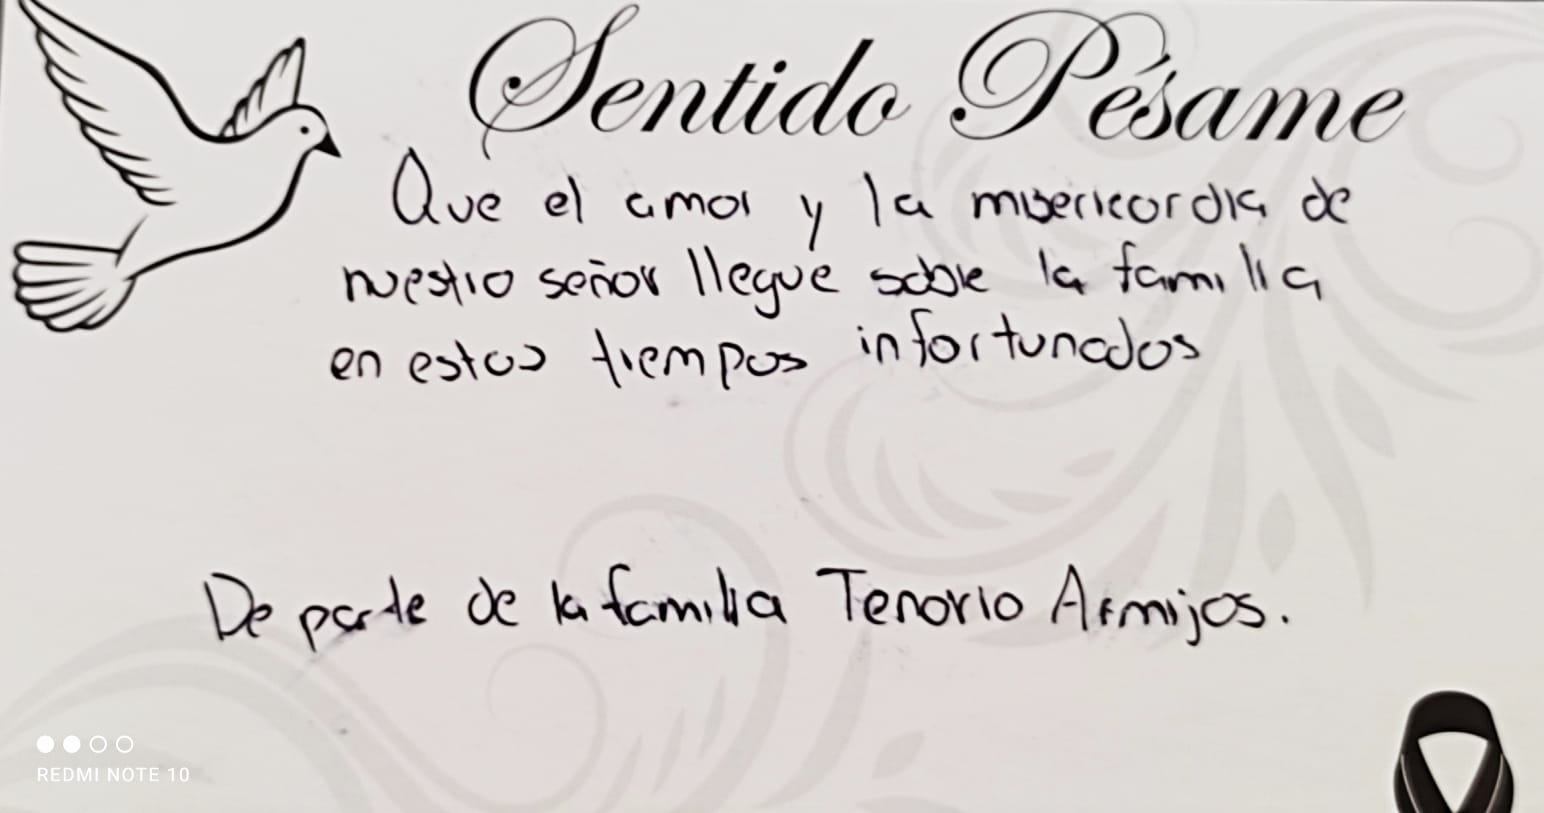 Sentido Pésame
Que el amor y la misericordia de
nuestro señor llegue sobre la familia
en estos tiempos infortunados
De parte de la familia Tenorio Armijos.
REDMI NOTE 10